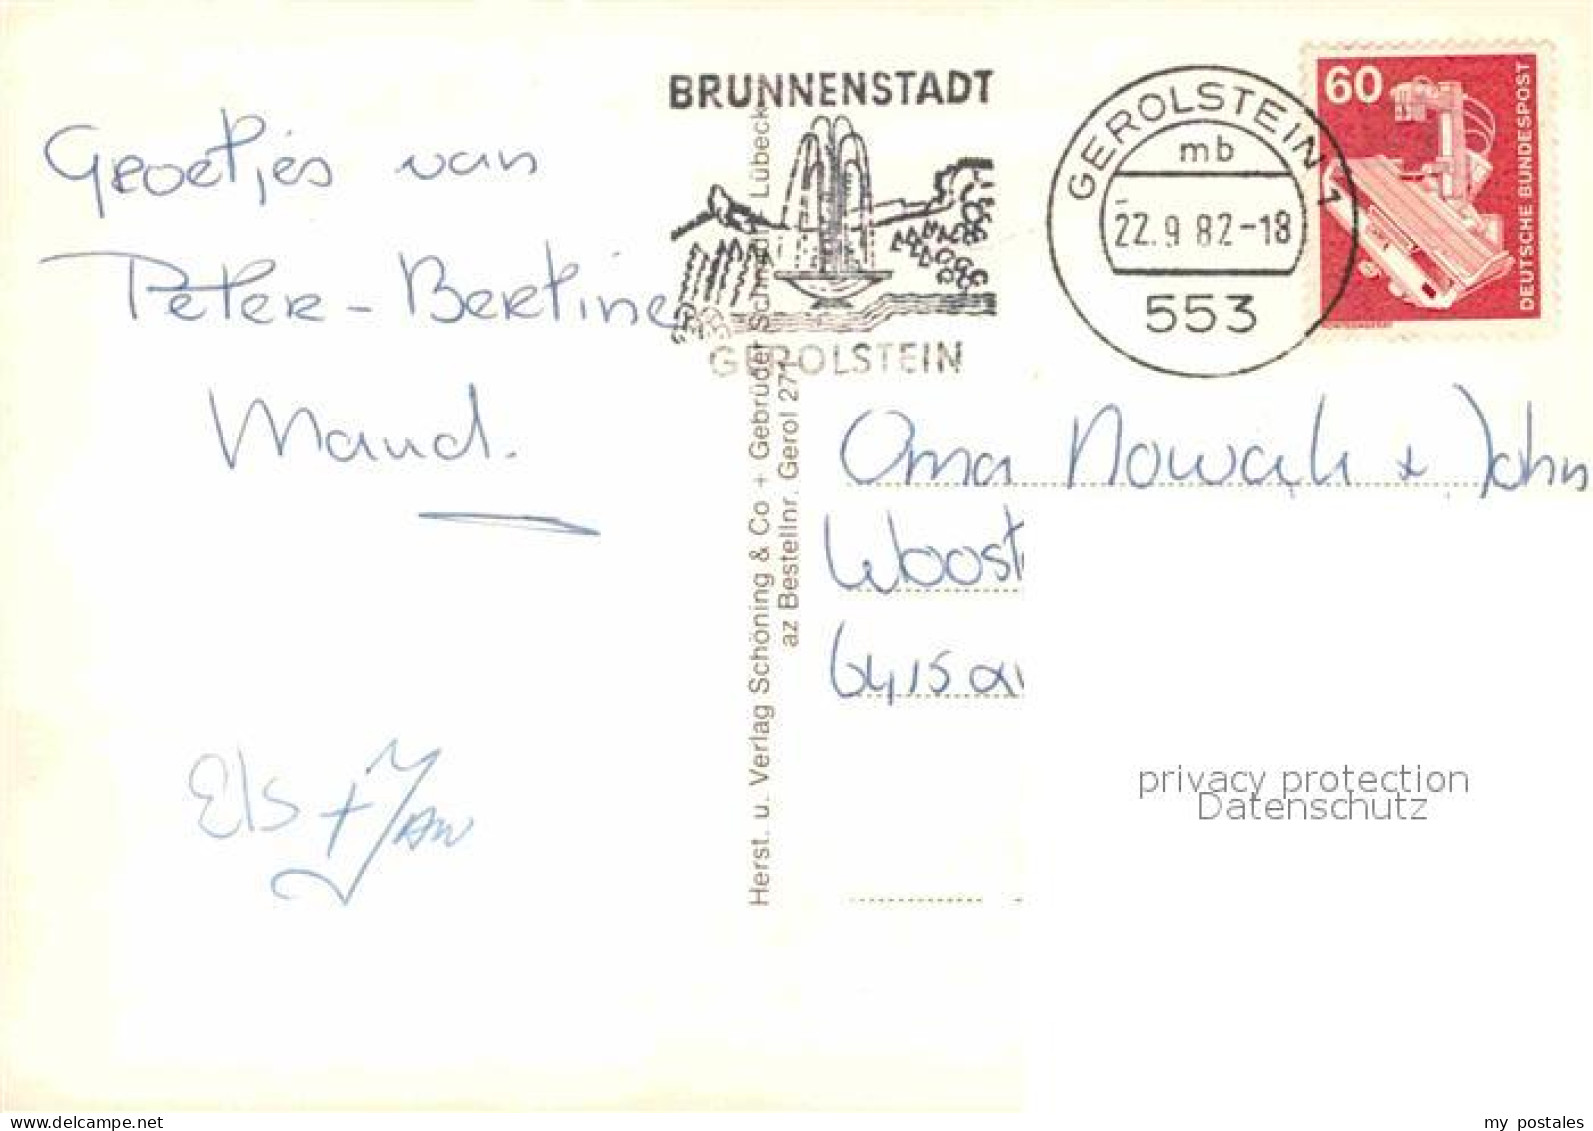 Groetjes van
Peter - Bertine
Maud.
Els + Jan
BRUNNENSTADT
GEROLSTEIN
GEROLSTEIN 1
mb
22.9.82-18
553
60
DEUTSCHE BUNDESPOST
Herst. u. Verlag Schöning & Co + Gebrüder Schmidt, Lübeck
az Bestellnr. Gerol 271
Oma Nowak + John
privacy protection
Datenschutz
my postales